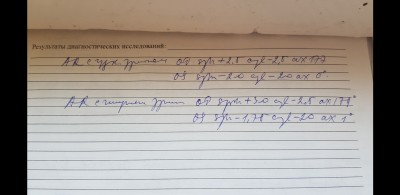 Результаты диагностических исследований:
AR с узк. зрачком OD sph +2,5 cyl -2,5 ax 177
OS sph -2,0 cyl -2,0 ax 6°
AR с широким зрач OD sph +3,0 cyl -2,5 ax 179°
OS sph -1,75 cyl -2,0 ax 1°